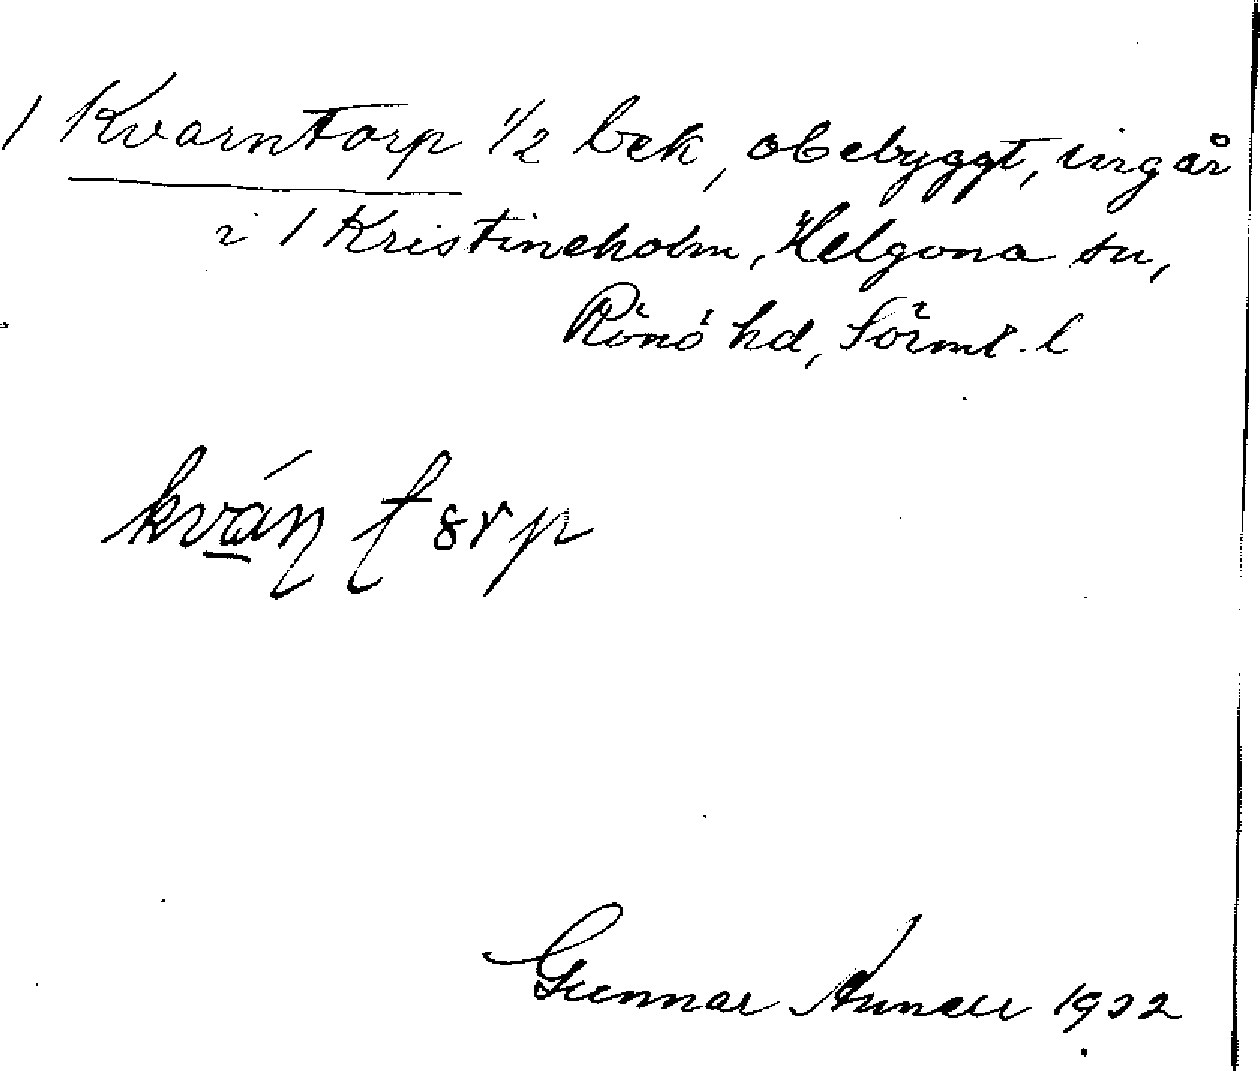 1 Kvarntorp 1/2 bek, obebyggt, ingår
i 1 Kristineholm, Helgona sn,
Rönö hd, Sörml. l
Gunnar 1932